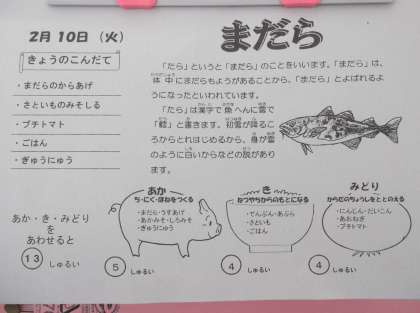 2月 10日 （火）
きょうのこんだて
・まだらのからあげ
・さといものみそしる
・プチトマト
・ごはん
・ぎゅうにゅう
まだら
「たら」というと「まだら」のことをいいます。「まだら」は、
体中にまだらもようがあることから、「まだら」とよばれるよ
うになったといわれています。
「たら」は漢字で魚へんに雪で
「鱈」と書きます。初雪が降るこ
ろからとれはじめるから、身が雪
のように白いからなどの説があり
ます。
あか
ち・にく・ほねをつくる
・まだら・うすあげ
・あかみそ・しろみそ
・ぎゅうにゅう
き
ねつやちからのもとになる
・でんぷん・あぶら
・さといも
・ごはん
みどり
からだのちょうしをととのえる
・にんじん・だいこん
・あおねぎ
・プチトマト
あか・き・みどり
を
あわせると
13 しゅるい
5 しゅるい
4 しゅるい
4 しゅるい